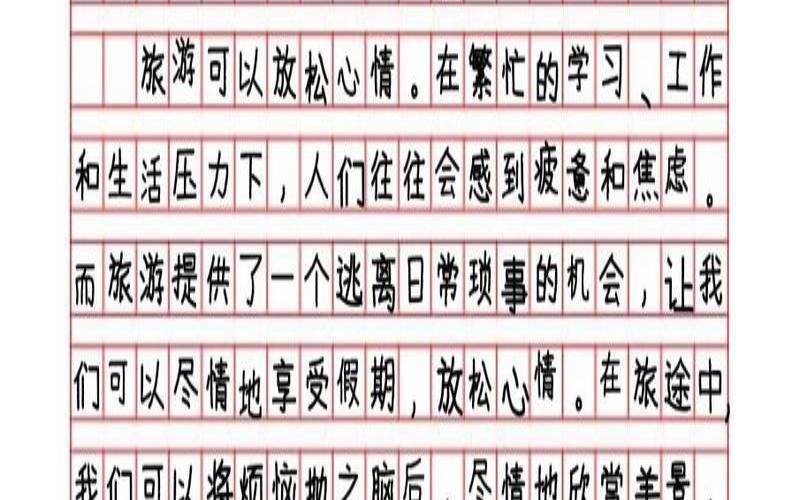 旅游可以放松心情。在繁忙的学习、工作
和生活压力下，人们往往会感到疲惫和焦虑。
而旅游提供了一个逃离日常琐事的机会，让我
们可以尽情地享受假期，放松心情。在旅途中，
我们可以将烦恼抛之脑后，尽情地欣赏美景，